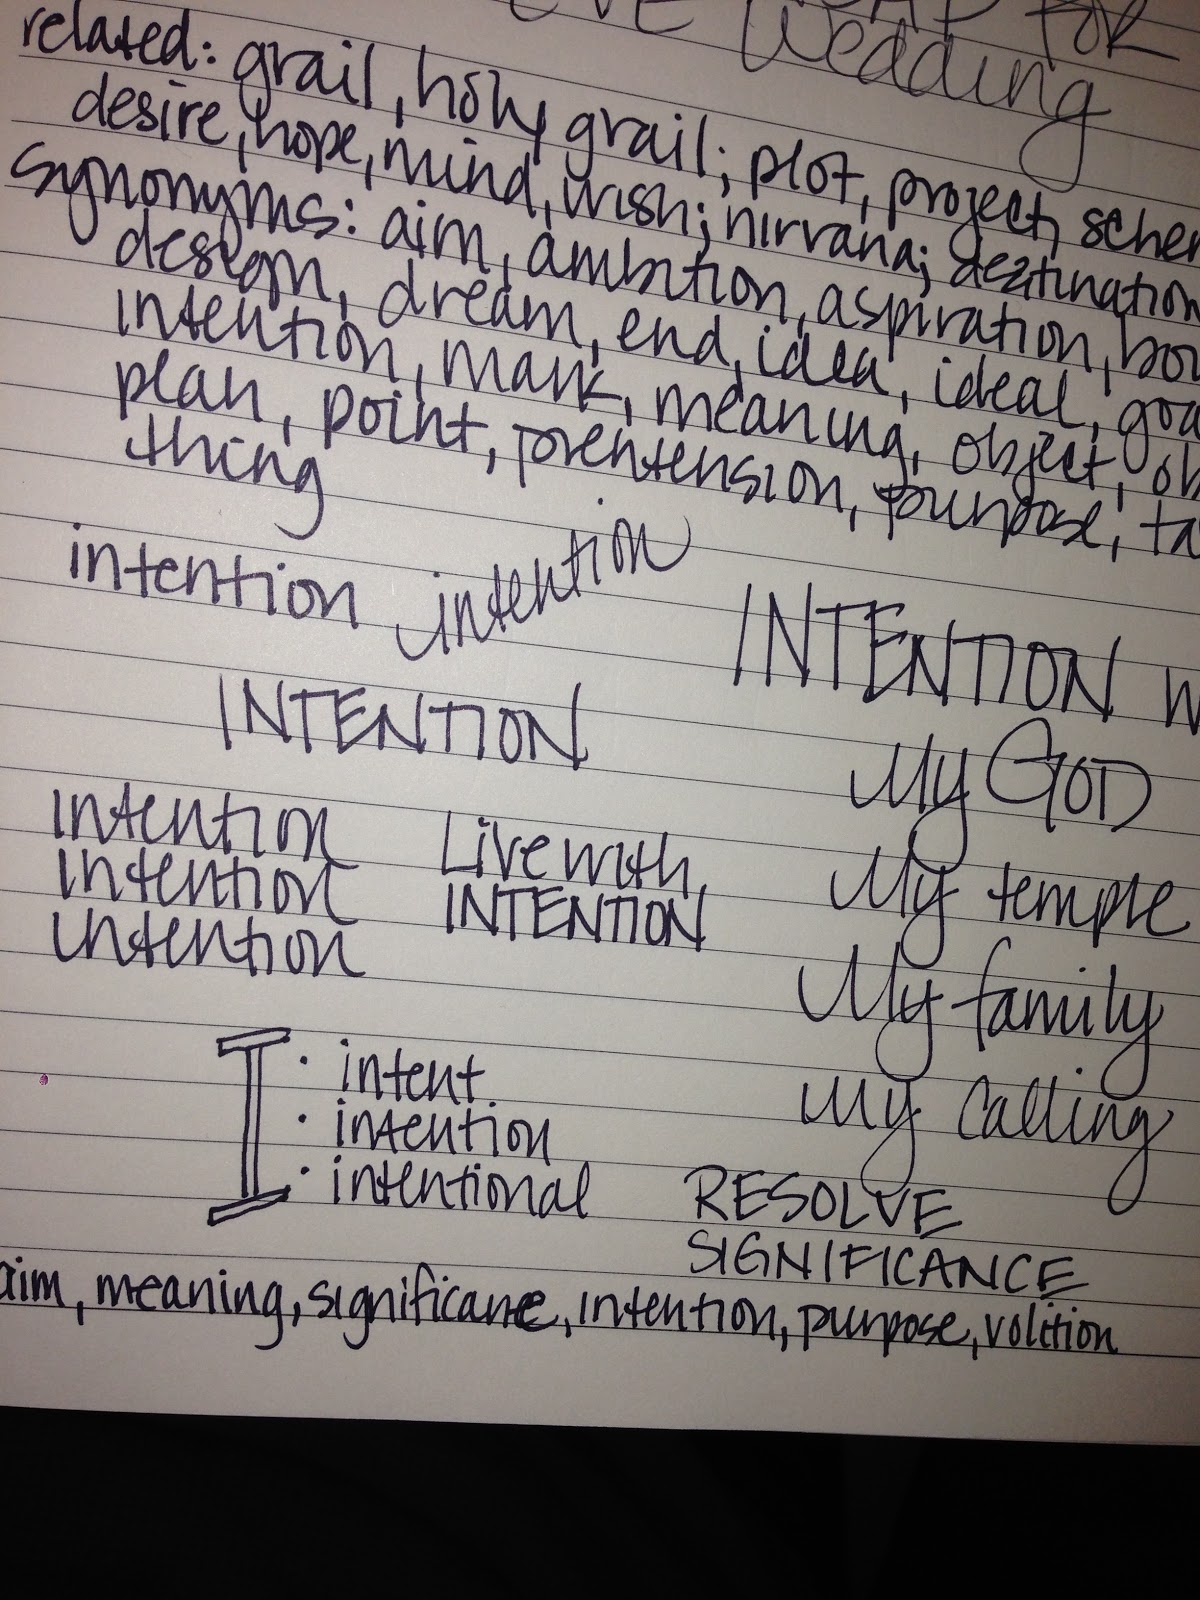 FOR
Wedding
related: grail, holy grail; plot, project, schem
desire, hope, mind, wish; nirvana; destination
synonyms: aim, ambition, aspiration, bou
design, dream, end, idea, ideal, goa
intention, mark, meaning, object, ob
plan, point, pretension, purpose, ta
thing
intention intention
INTENTION W
INTENTION
My GOD
intention
intention
intention
Live with
INTENTION
My temple
My family
My calling
I
· intent
· intention
· intentional
RESOLVE
SIGNIFICANCE
aim, meaning, significance, intention, purpose, volition